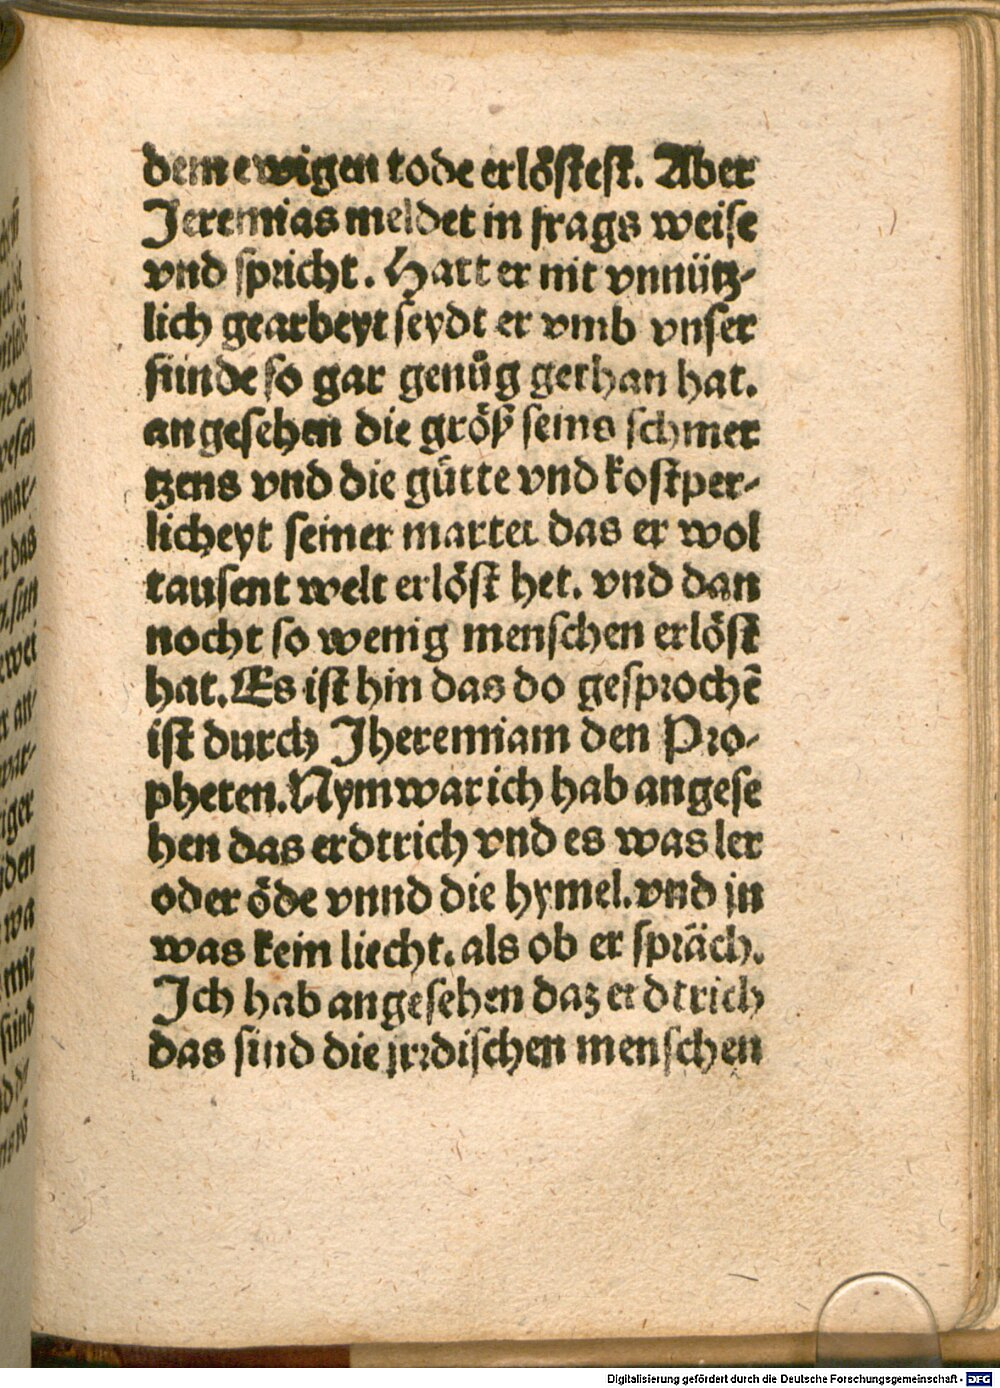 dem ewigen tode erlöstest. Aber
Jeremias meldet in frags weise
vnd spricht. Hatt er nit vnnütz-
lich gearbeyt seydt er vmb vnser
sünde so gar genůg gethan hat.
angesehen die größ seins schmer
tzens vnd die gütte vnd kostper-
licheyt seiner marter das er wol
tausent welt erlöst het. vnd dan
nocht so wenig menschen erlöst
hat. Es ist hin das do gesprochē
ist durch Jheremiam den Pro-
pheten. Nym war ich hab angese
hen das erdtrich vnd es was ler
oder öde vnnd die hymel. vnd jn
was kein liecht. als ob er spräch.
Ich hab angesehen daz erdtrich
das sind die jrrdischen menschen
Digitalisierung gefördert durch die Deutsche Forschungsgemeinschaft - DFG